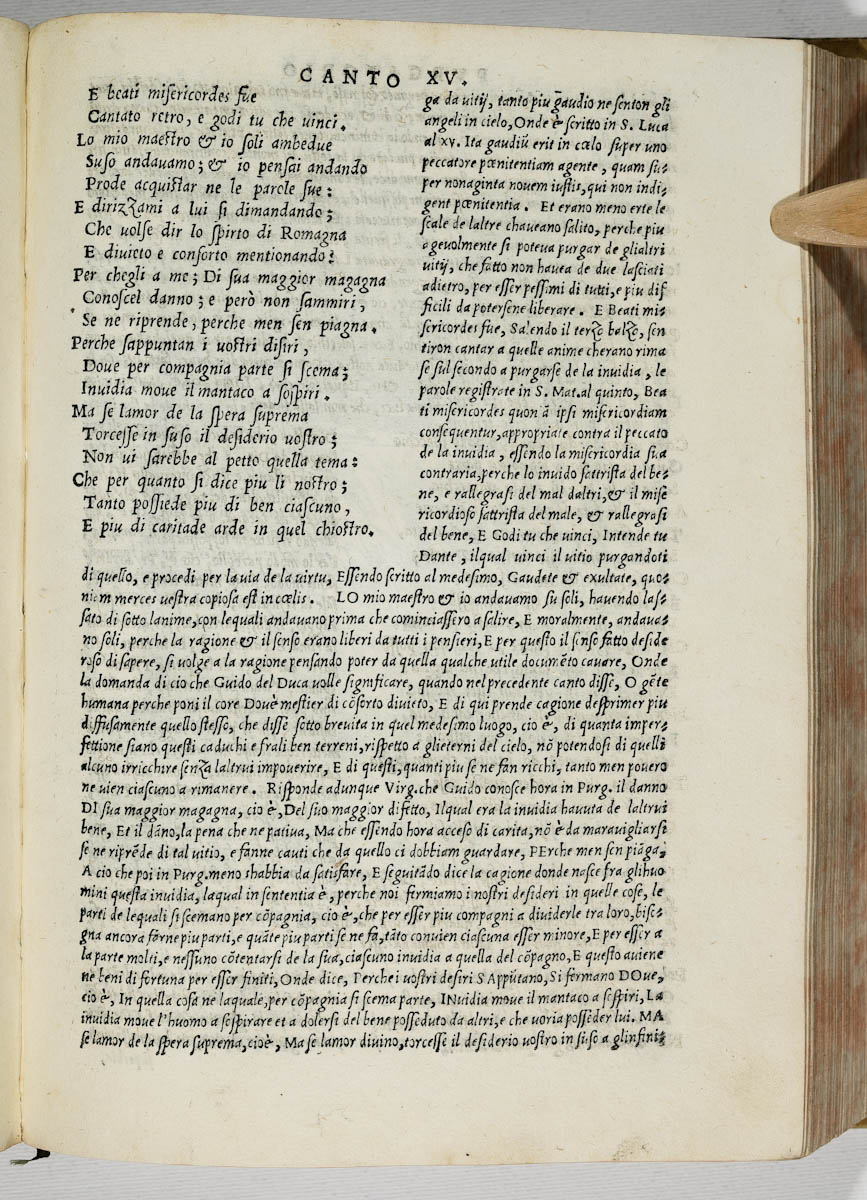 CANTO XV.
E beati misericordes fue
Cantato retro, e godi tu che vinci.
Lo mio maestro & io soli ambedue
Suso andauamo; & io pensai andando
Prode acquistar ne le parole sue:
E dirizzami a lui si dimandando;
Che uolse dir lo spirto di Romagna
E diuieto e consorto mentionando?
Per chegli a me; Di sua maggior magagna
Conoscel danno; e però non sammiri,
Se ne riprende, perche men sen piagna.
Perche sappuntan i uostri disiri,
Doue per compagnia parte si scema;
Inuidia moue il mantaco a sospiri.
Ma se lamor de la spera suprema
Torcesse in suso il desiderio uostro;
Non ui sarebbe al petto quella tema:
Che per quanto si dice piu li nostro;
Tanto possiede piu di ben ciascuno,
E piu di caritade arde in quel chiostro.
ga da uitij, tanto piu gaudio ne senton gli
angeli in cielo, Onde è scritto in S. Luca
al xv. Ita gaudiū erit in cœlo super uno
peccatore pœnitentiam agente, quam su-
per nonaginta nouem iustis, qui non indi-
gent pœnitentia. Et erano meno erte le
scale de laltre chaueano salito, perche piu
ageuolmente si poteua purgar de glialtri
uitij, che fatto non hauea de due lasciati
adietro, per esser pessimi di tutti, e piu dif
ficili da potersene liberare. E Beati mi-
sericordes fue, Salendo il terzo balzo, sen
tiron cantar a quelle anime cherano rima
se sul secondo a purgarse de la inuidia, le
parole registrate in S. Mat.al quinto, Bea
ti misericordes quoniā ipsi misericordiam
consequentur, appropriate contra il peccato
de la inuidia, essendo la misericordia sua
contraria, perche lo inuido sattrista del be-
ne, e rallegrasi del mal daltri, & il mise
ricordioso sattrista del male, & rallegrasi
del bene, E Godi tu che uinci, Intende tu
Dante, ilqual uinci il uitio purgandoti
di quello, e procedi per la uia de la uirtu, Essendo scritto al medesimo, Gaudete & exultate, quo-
niam merces uestra copiosa est in cœlis. LO mio maestro & io andauamo su soli, hauendo las-
sato di sotto lanime, con lequali andauano prima che cominciassero a salire, E moralmente, andaua-
no soli, perche la ragione & il senso erano liberi da tutti i pensieri, E per questo il senso fatto deside
roso di sapere, si uolge a la ragione pensando poter da quella qualche utile documēto cauare, Onde
la domanda di cio che Guido del Duca uolle significare, quando nel precedente canto disse, O gēte
humana perche poni il core Douè mestier di cōsorto diuieto, E di qui prende cagione desprimer piu
diffusamente quello stesso, che disse sotto breuita in quel medesimo luogo, cio è, di quanta imper-
fettione siano questi caduchi e frali ben terreni, rispetto a glieterni del cielo, nō potendosi di quelli
alcuno irricchire senza laltrui impouerire, E di questi, quanti piu se ne fan ricchi, tanto men pouero
ne uien ciascuno a rimanere. Risponde adunque Virg.che Guido conosce hora in Purg. il danno
DI sua maggior magagna, cio è, Del suo maggior difetto, Ilqual era la inuidia hauuta de laltrui
bene, Et il dāno, la pena che ne patiua, Ma che essendo hora acceso di carita, nō è da marauigliarsi
se ne riprēde di tal uitio, e fanne cauti che da quello ci dobbiam guardare, PErche men sen piāga,
A cio che poi in Purg.meno shabbia da satisfare, E seguitādo dice la cagione donde nasce fra glihuo
mini questa inuidia, laqual in sententia è, perche noi fermiamo i nostri desideri in quelle cose, le
parti de lequali si scemano per cōpagnia, cio è, che per esser piu compagni a diuiderle tra loro, biso-
gna ancora farne piu parti, e quāte piu parti se ne fa, tāto conuien ciascuna esser minore, E per esser a
la parte molti, e nessuno cōtentarsi de la sua, ciascuno inuidia a quella del cōpagno, E questo auiene
ne beni di fortuna per esser finiti, Onde dice, Perche i uostri desiri SAppūtano, Si fermano DOue,
cio è, In quella cosa ne laquale, per cōpagnia si scema parte, INuidia moue il mantaco a sospiri, La
inuidia moue l'huomo a sospirare et a dolersi del bene posseduto da altri, e che uoria posseder lui. MA
se lamor de la spera suprema, cioè, Ma se lamor diuino, torcesse il desiderio uostro in suso a glinfini-